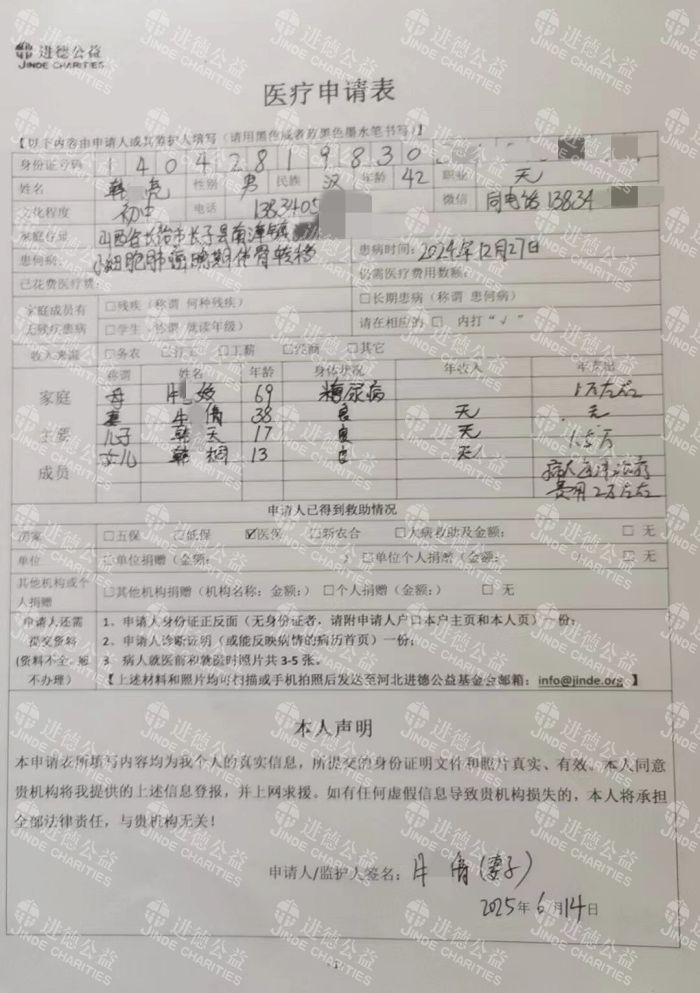 进德公益
JINDE CHARITIES
医疗申请表
【以下内容由申请人或其监护人填写（请用黑色或者蓝黑色墨水笔书写）】
身份证号码 1 4 0 4 2 8 1 9 8 3 0
姓名 韩 虎 性别 男 民族 汉 年龄 42 职业 无
文化程度 初中 电话 1383405 微信 同电话13834
家庭住址 山西省长治市长子县南漳镇
患何病: 小细胞肺癌晚期伴骨转移 患病时间: 2024年12月27日
已花费医疗费: 仍需医疗费用数额:
家庭成员有无残疾患病 □残疾（称谓 何种残疾） □长期患病（称谓 患何病）
□学生（称谓 就读年级） 请在相应的 □ 内打“√”
收入来源 □务农 □打工 □工薪 □经商 □其它
家庭主要成员 称谓 姓名 年龄 身体状况 年收入 年支出
母 姣 69 糖尿病 1万左右
妻 倩 38 良 无 无
儿子 韩天 17 良 无 1.5万
女儿 韩桐 13 良 无
病人医洋治疗
费用2万左右
申请人已得到救助情况
国家 □五保 □低保 ☑医保 □新农合 □大病救助及金额: □ 无
单位 □单位捐赠（金额: ） □单位个人捐赠（金额: ） □ 无
其他机构或个人捐赠 □其他机构捐赠（机构名称: 金额:） □个人捐赠（金额:） □ 无
申请人还需提交资料(资料不全，恕不办理) 1、申请人身份证正反面（无身份证者，请附申请人户口本户主页和本人页）一份;
2、申请人诊断证明（或能反映病情的病历首页）一份;
3、病人就医前和就医时照片共3-5张。
【上述材料和照片均可扫描或手机拍照后发送至河北进德公益基金会邮箱: info@jinde.org 】
本人声明
本申请表所填写内容均为我个人的真实信息，所提交的身份证明文件和照片真实、有效。本人同意
贵机构将我提供的上述信息登报，并上网求援。如有任何虚假信息导致贵机构损失的，本人将承担
全部法律责任，与贵机构无关！
申请人/监护人签名: 倩(妻子)
2025年6月14日